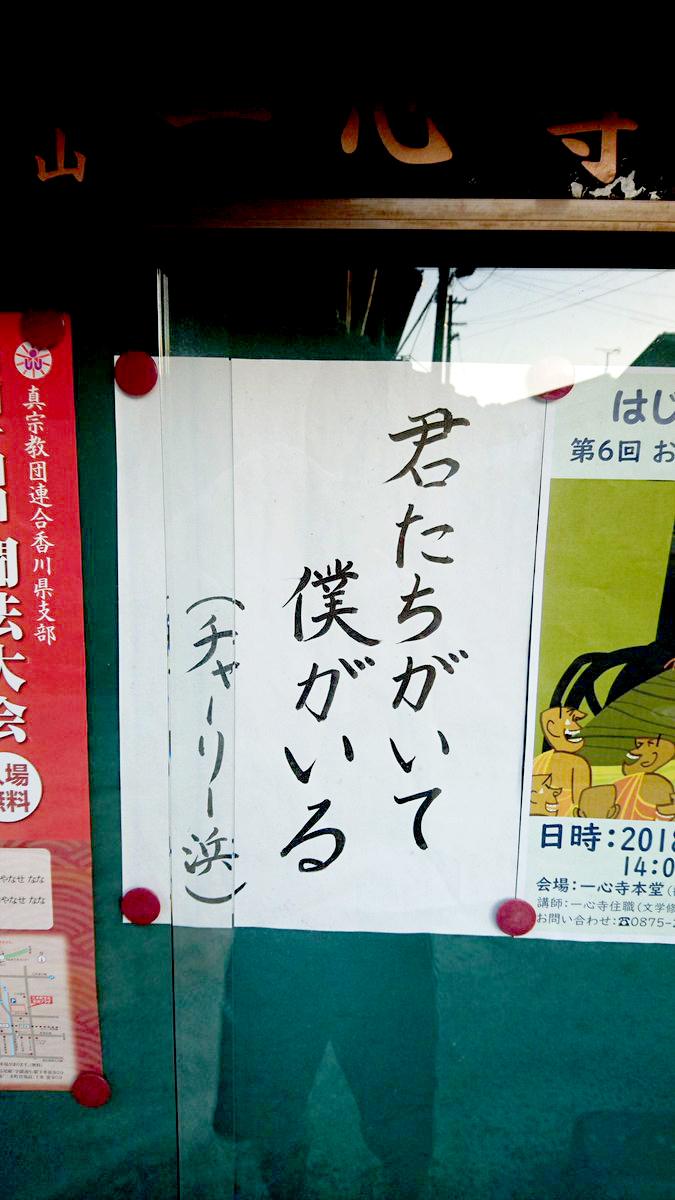 山 一心寺
君たちがいて
僕がいる
(チャーリー浜)
真宗教団連合香川県支部
聞法大会
入場
無料
やなせ なな
やなせ なな
はじ
第6回 お
日時:2018
14:0
会場:一心寺本堂
講師:一心寺住職(文学修
お問い合わせ:☎0875-2